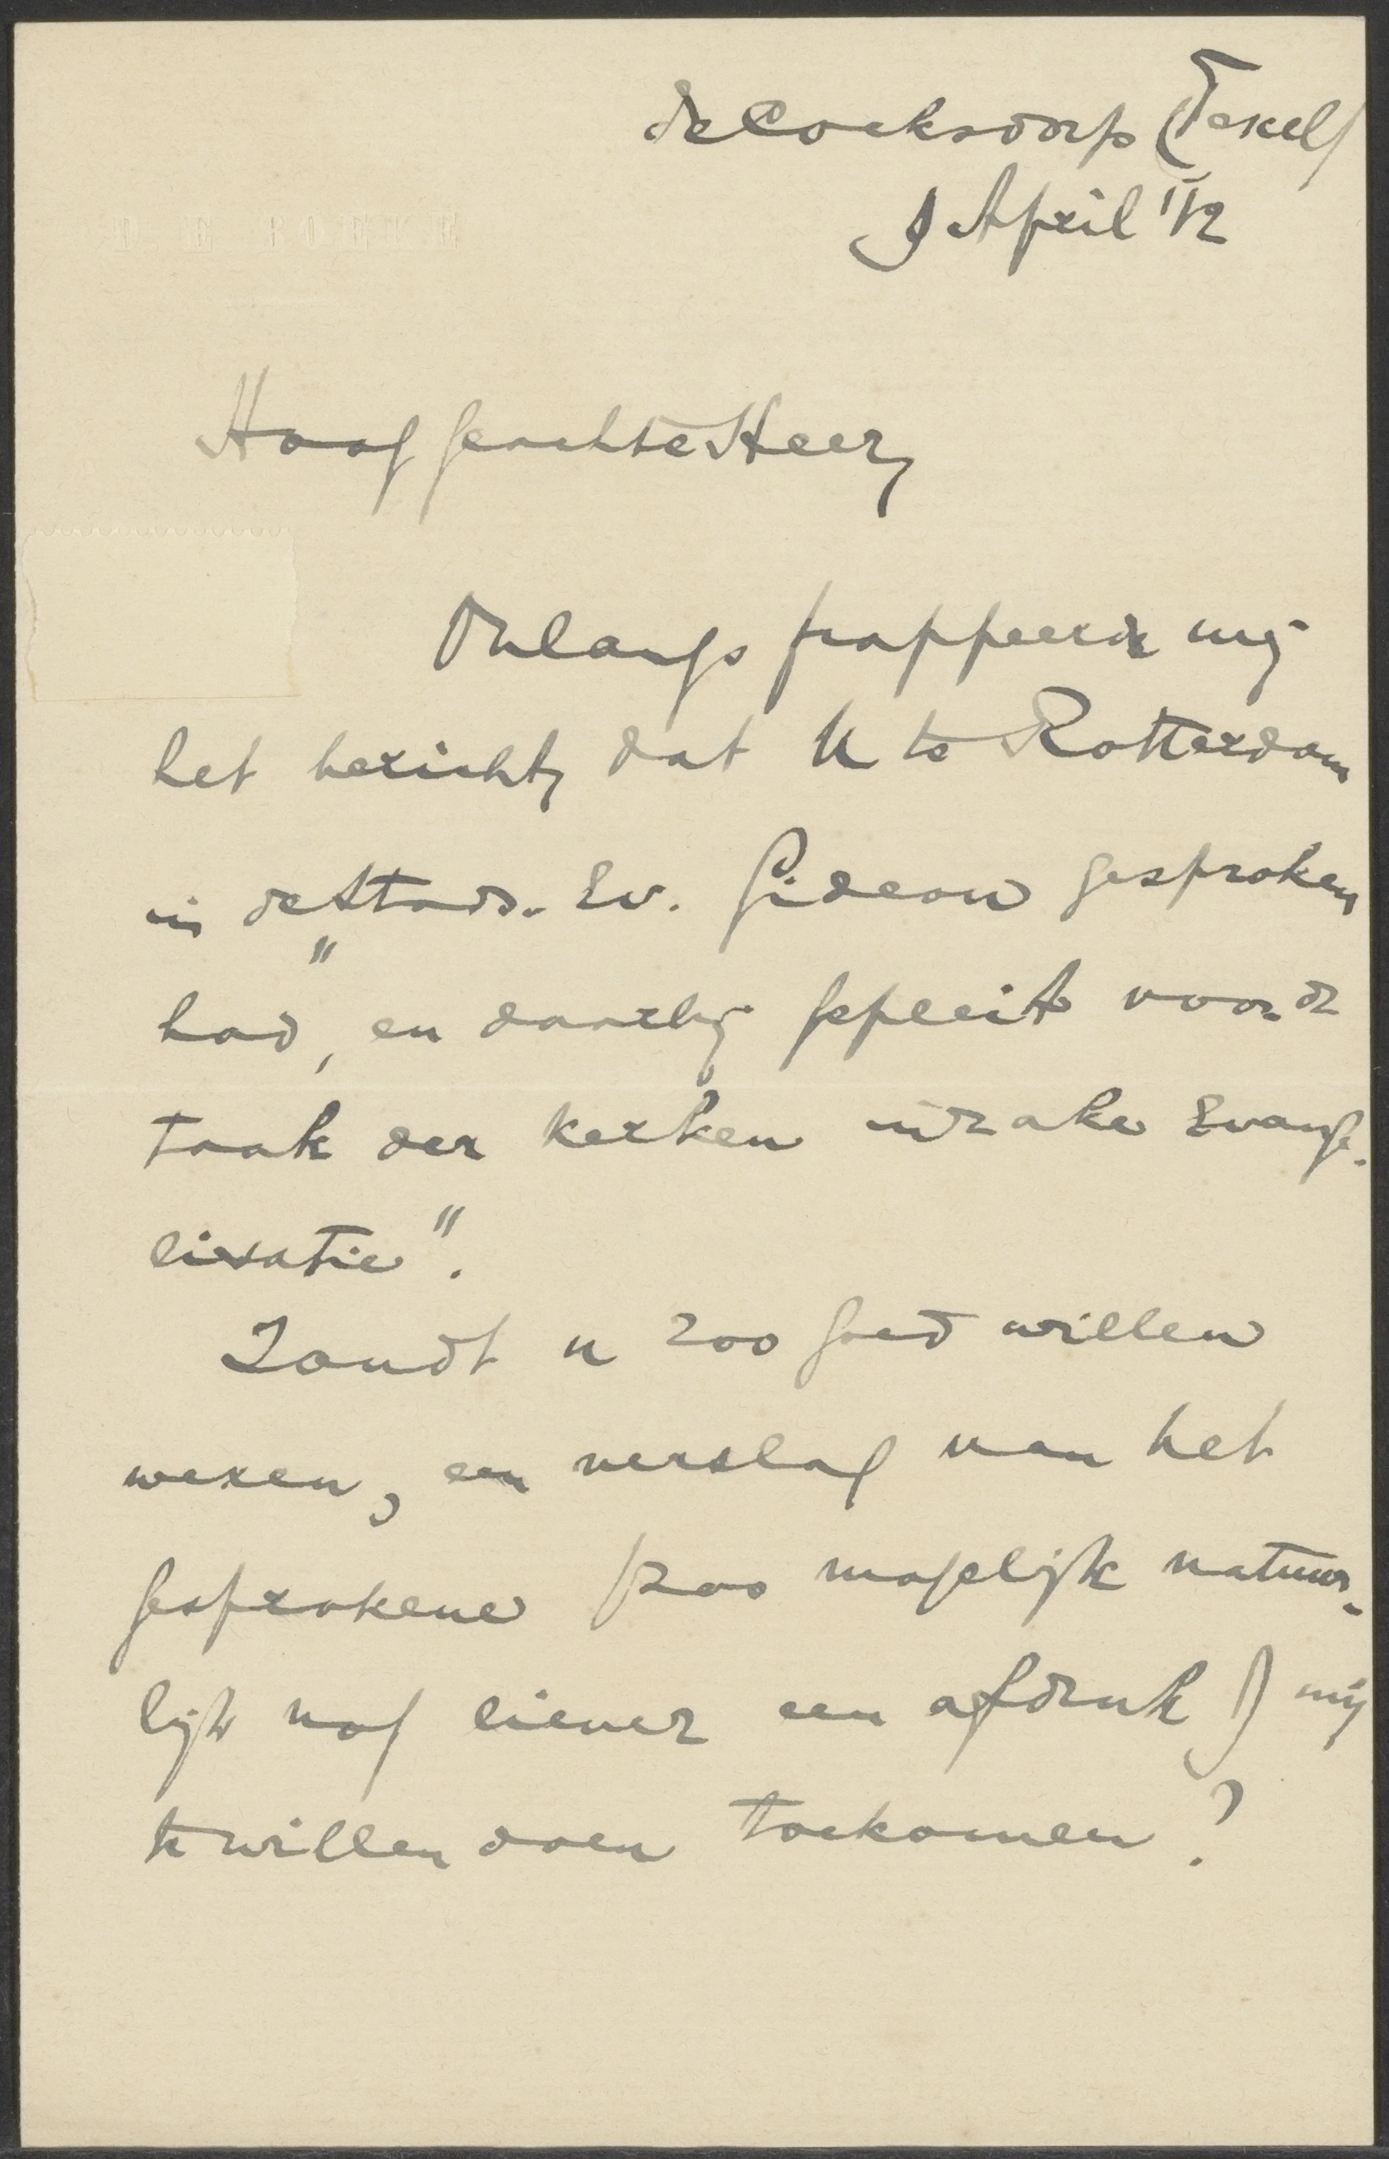 de Cocksdorp (Texel)
9 April '12
D E BOEKE
Hooggeachte Heer,
Onlangs frappeerde mij
het bericht, dat U te Rotterdam
in de Stads. Ev. Gideon gesproken
had, en daarbij „gepleit voor de
taak der kerken inzake Evange-
lisatie".
Zoudt u zoo goed willen
wezen, een verslag van het
gesprokene (zoo mogelijk natuur-
lijk nog liever een afdruk) mij
te willen doen toekomen?